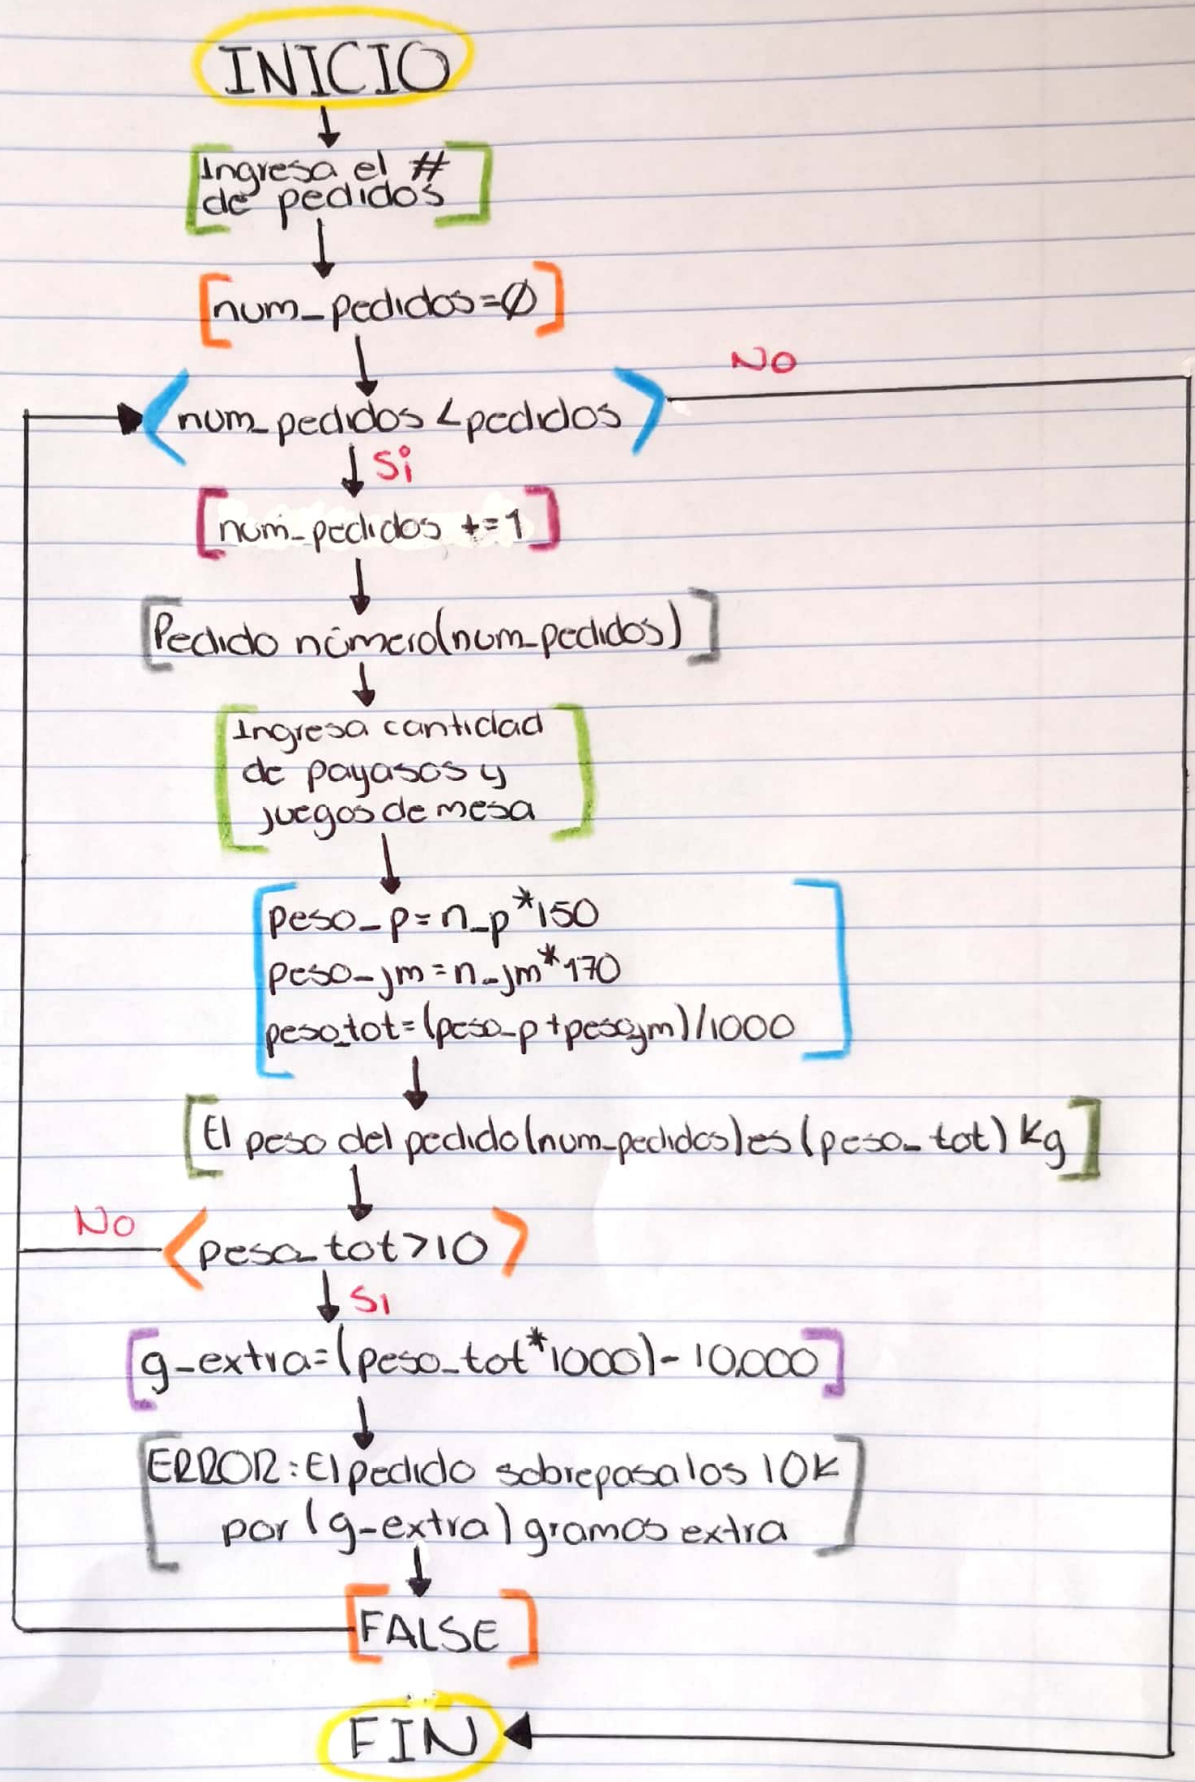 INICIO
Ingresa el #
de pedidos
num_pedidos=Ø
No
num_pedidos < pedidos
Si
num_pedidos +=1
Pedido número(num_pedidos)
Ingresa cantidad
de payasos y
juegos de mesa
peso_p=n_p*150
peso_jm=n_jm*170
peso_tot=(peso_p+peso_jm)/1000
El peso del pedido(num_pedidos)es(peso_tot) Kg
No
peso_tot>10
Si
g_extra=(peso_tot*1000)-10.000
ERROR: El pedido sobrepasa los 10K
por (g_extra) gramos extra
FALSE
FIN